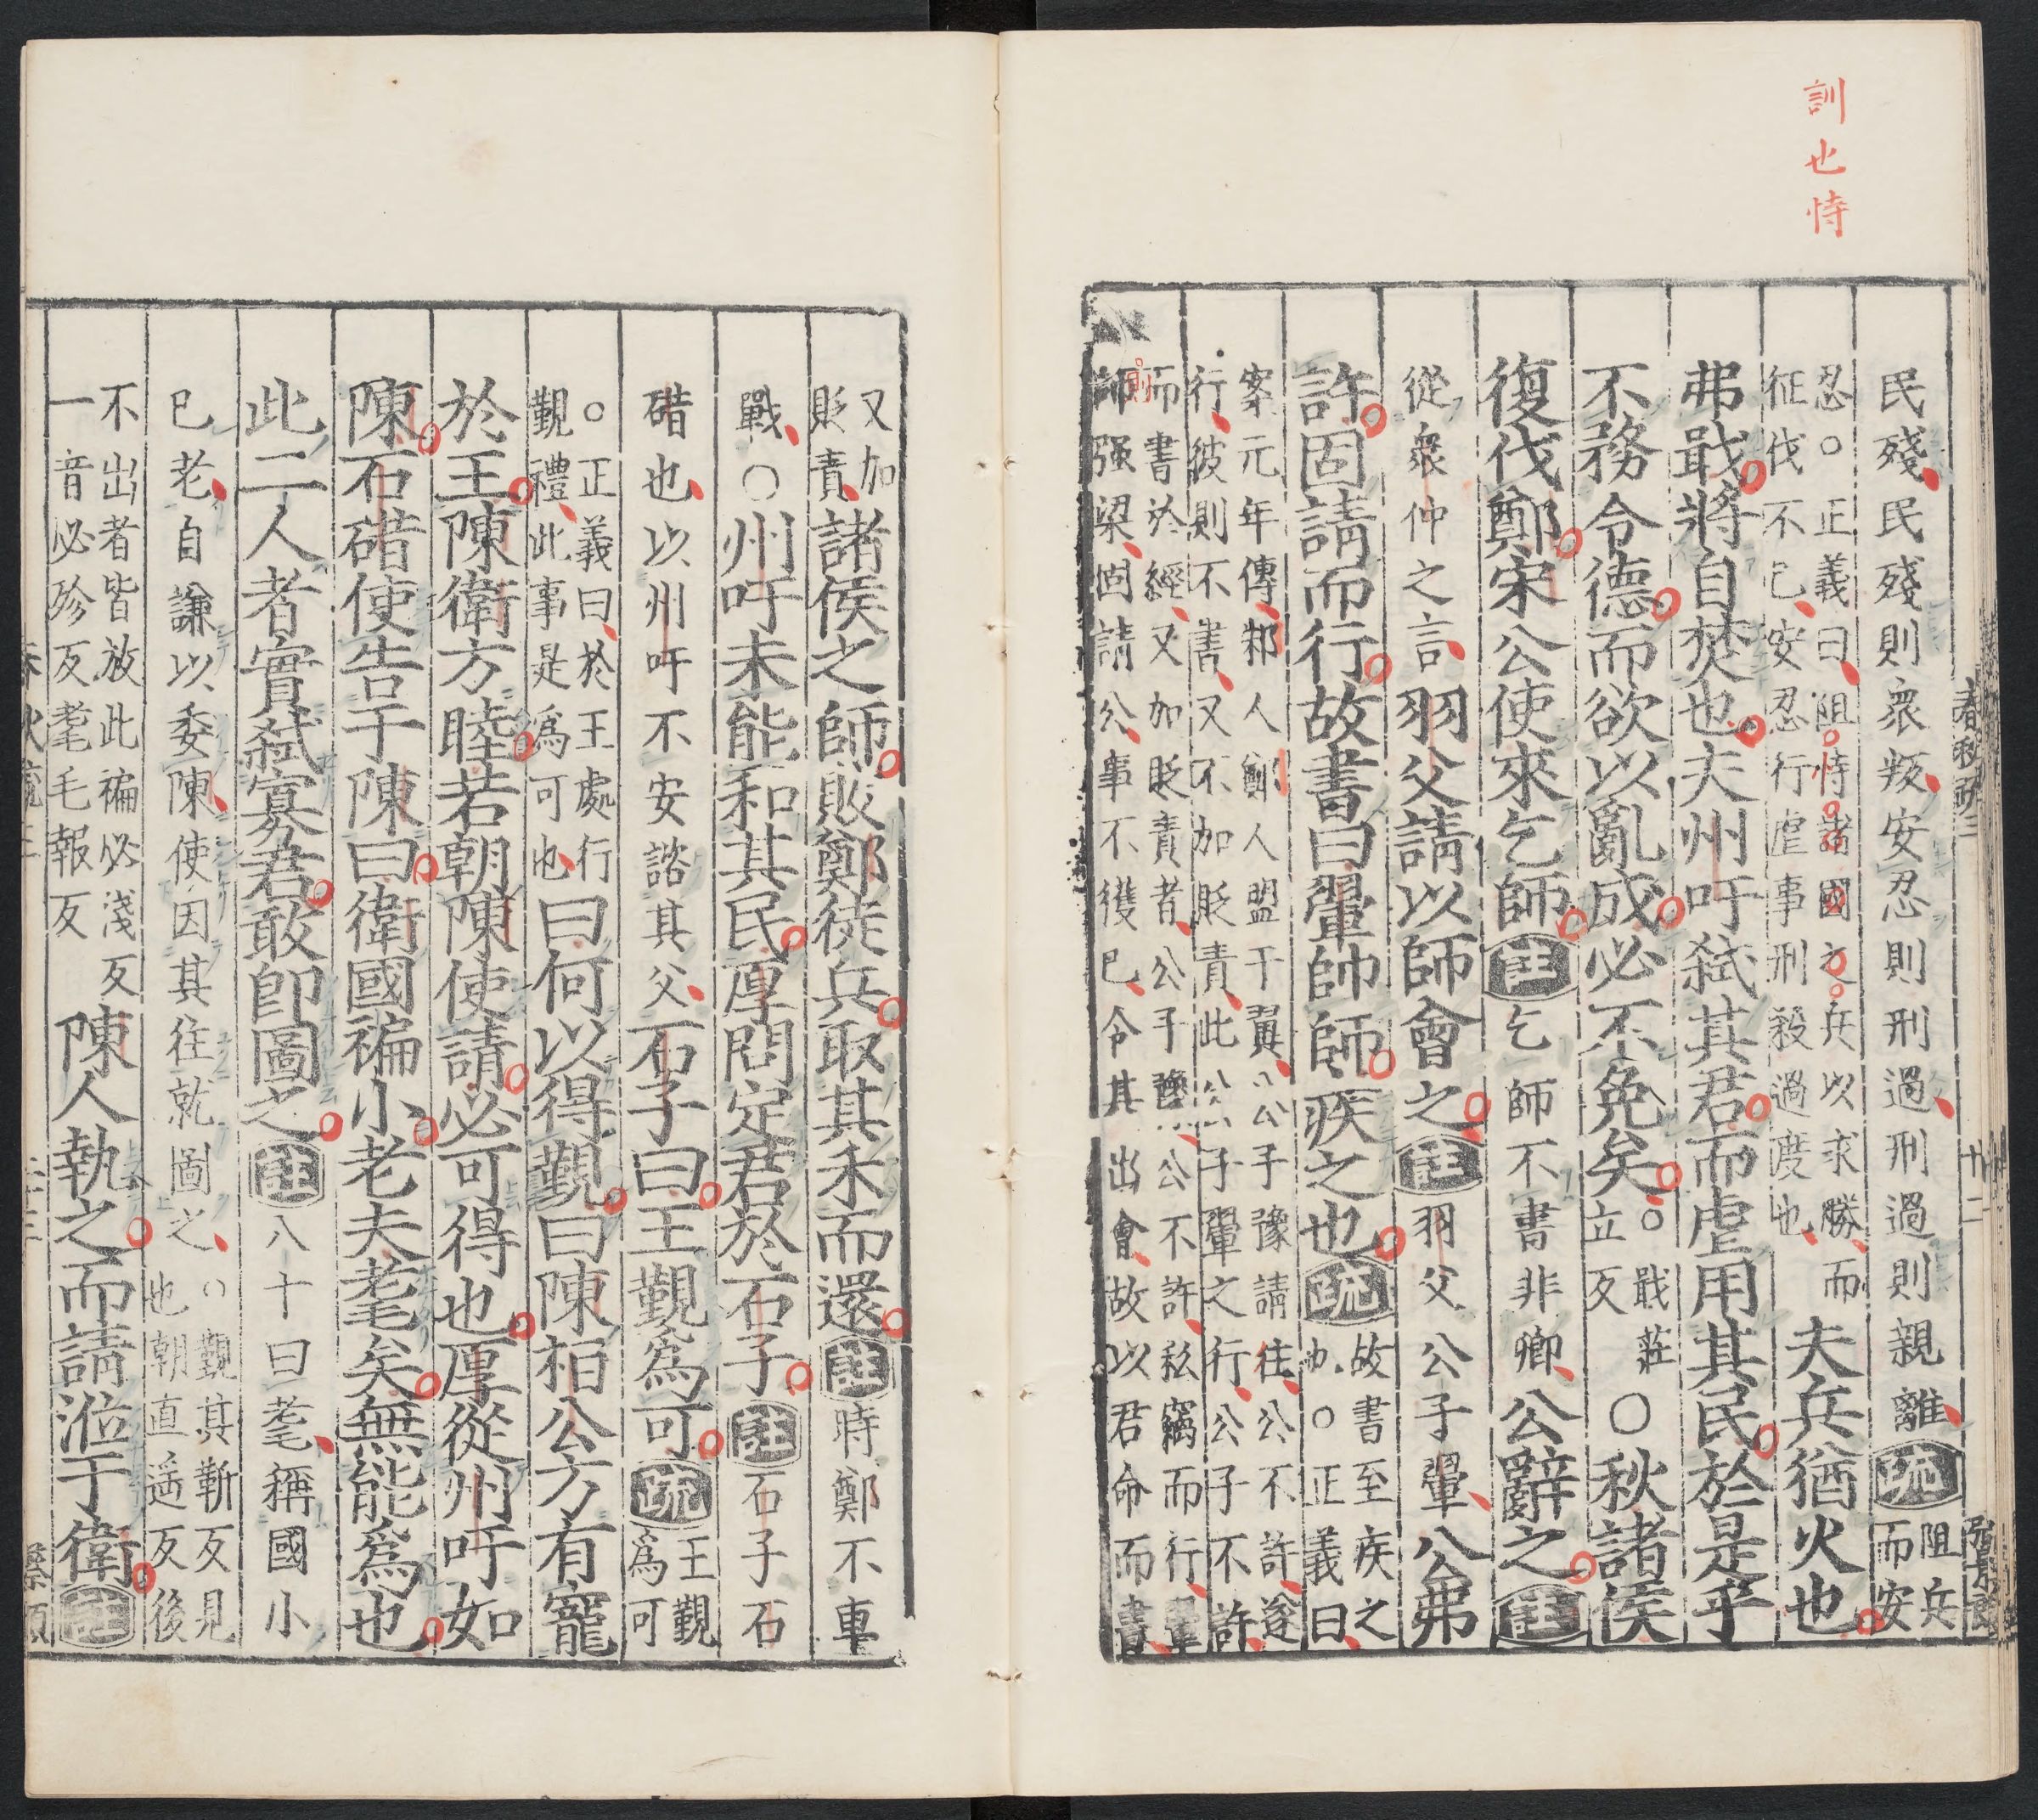 訓也恃
民殘民殘則衆叛安忍則刑過刑過則親離疏阻兵
而安
忍○正義曰阻恃諸國之兵以求勝而
征伐不已安忍行虐事刑殺過度也
夫兵猶火也
弗戢將自焚也夫州吁弑其君而虐用其民於是乎
不務令德而欲以亂成必不免矣○戢莊
立反
○秋諸侯
復伐鄭宋公使來乞師註乞師不書非卿公辭之註
從衆仲之言羽父請以師會之註羽父公子翬公弗
許固請而行故書曰翬帥師疾之也疏故書至疾之
也○正義曰
案元年傳邾人鄭人盟于翼公子豫請往公不許遂
行彼則不書又不加貶責此公子翬之行公子不許
而書於經又加貶責者公子豫公不許私竊而行翬
師强梁固請公事不獲已令其出會故以君命而書
則
春秋疏三
十二
又加
貶責
諸侯之師敗鄭徒兵取其禾而還註時鄭不車
戰○州吁未能和其民厚問定君於石子註石子石
碏也以州吁不安諮其父石子曰王覲爲可疏王覲
爲可
○正義曰於王處行
覲禮此事是爲可也
曰何以得覲曰陳桓公方有寵
於王陳衛方睦若朝陳使請必可得也厚從州吁如
陳石碏使告于陳曰衛國褊小老夫耄矣無能爲也
此二人者實弑寡君敢即圖之註八十曰耄稱國小
已老自謙以委陳使因其往就圖之○覲其靳反見
也朝直遥反後
不出者皆放此褊必淺反
一音必殄反耄毛報反
陳人執之而請涖于衛註